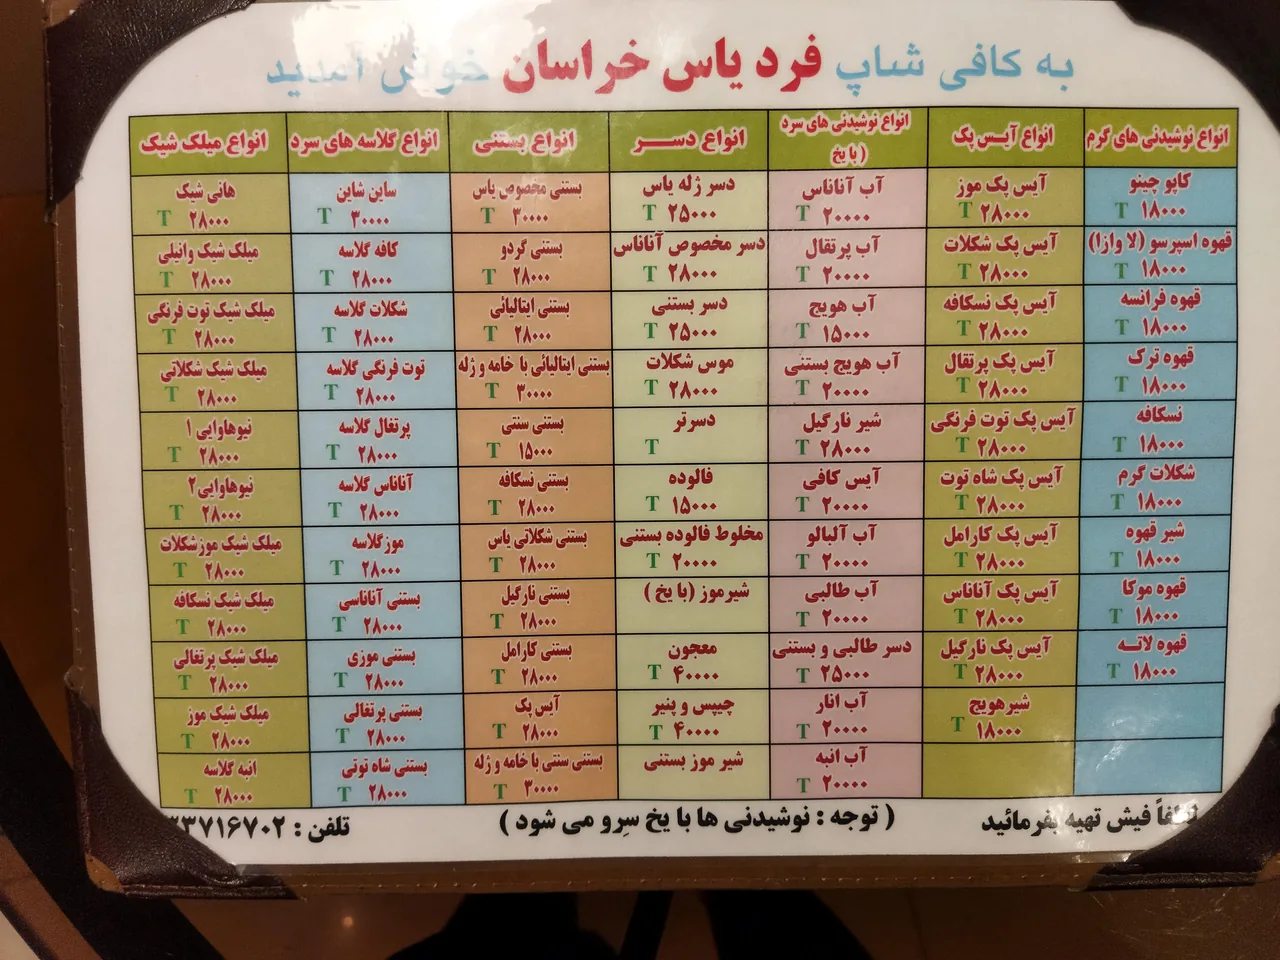 به کافی شاپ فرد یاس خراسان خوش آمدید
انواع نوشیدنی های گرم
کاپو چینو
۱۸۰۰۰ T
قهوه اسپرسو (لا وازا)
۱۸۰۰۰ T
قهوه فرانسه
۱۸۰۰۰ T
قهوه ترک
۱۸۰۰۰ T
نسکافه
۱۸۰۰۰ T
شکلات گرم
۱۸۰۰۰ T
شیر قهوه
۱۸۰۰۰ T
قهوه موکا
۱۸۰۰۰ T
قهوه لاته
۱۸۰۰۰ T
انواع آیس پک
آیس پک موز
۲۸۰۰۰ T
آیس پک شکلات
۲۸۰۰۰ T
آیس پک نسکافه
۲۸۰۰۰ T
آیس پک پرتقال
۲۸۰۰۰ T
آیس پک توت فرنگی
۲۸۰۰۰ T
آیس پک شاه توت
۲۸۰۰۰ T
آیس پک کارامل
۲۸۰۰۰ T
آیس پک آناناس
۲۸۰۰۰ T
آیس پک نارگیل
۲۸۰۰۰ T
شیرهویج
۱۸۰۰۰ T
انواع نوشیدنی های سرد
( با یخ )
آب آناناس
۲۰۰۰۰ T
آب پرتقال
۲۰۰۰۰ T
آب هویج
۱۵۰۰۰ T
آب هویج بستنی
۲۰۰۰۰ T
شیر نارگیل
۲۸۰۰۰ T
آیس کافی
۲۰۰۰۰ T
آب آلبالو
۲۰۰۰۰ T
آب طالبی
۲۰۰۰۰ T
دسر طالبی و بستنی
۲۵۰۰۰ T
آب انار
۲۰۰۰۰ T
آب انبه
۲۰۰۰۰ T
انواع دسر
دسر ژله یاس
۲۵۰۰۰ T
دسر مخصوص آناناس
۲۸۰۰۰ T
دسر بستنی
۲۵۰۰۰ T
موس شکلات
۲۸۰۰۰ T
دسرتر
T
فالوده
۱۵۰۰۰ T
مخلوط فالوده بستنی
۲۰۰۰۰ T
شیرموز (با یخ )
معجون
۴۰۰۰۰ T
چیپس و پنیر
۴۰۰۰۰ T
شیر موز بستنی
انواع بستنی
بستنی مخصوص یاس
۳۰۰۰۰ T
بستنی گردو
۲۸۰۰۰ T
بستنی ایتالیائی
۲۸۰۰۰ T
بستنی ایتالیائی با خامه و ژله
۳۰۰۰۰ T
بستنی سنتی
۱۵۰۰۰ T
بستنی نسکافه
۲۸۰۰۰ T
بستنی شکلاتی یاس
۲۸۰۰۰ T
بستنی نارگیل
۲۸۰۰۰ T
بستنی کارامل
۲۸۰۰۰ T
آیس پک
۲۸۰۰۰ T
بستنی سنتی با خامه و ژله
۳۰۰۰۰ T
انواع گلاسه های سرد
ساین شاین
۳۰۰۰۰ T
کافه گلاسه
۲۸۰۰۰ T
شکلات گلاسه
۲۸۰۰۰ T
توت فرنگی گلاسه
۲۸۰۰۰ T
پرتغال گلاسه
۲۸۰۰۰ T
آناناس گلاسه
۲۸۰۰۰ T
موزگلاسه
۲۸۰۰۰ T
بستنی آناناسی
۲۸۰۰۰ T
بستنی موزی
۲۸۰۰۰ T
بستنی پرتغالی
۲۸۰۰۰ T
بستنی شاه توتی
۲۸۰۰۰ T
انواع میلک شیک
هانی شیک
۲۸۰۰۰ T
میلک شیک وانیلی
۲۸۰۰۰ T
میلک شیک توت فرنگی
۲۸۰۰۰ T
میلک شیک شکلاتی
۲۸۰۰۰ T
نیوهاوایی ۱
۲۸۰۰۰ T
نیوهاوایی۲
۲۸۰۰۰ T
میلک شیک موزشکلات
۲۸۰۰۰ T
میلک شیک نسکافه
۲۸۰۰۰ T
میلک شیک پرتغالی
۲۸۰۰۰ T
میلک شیک موز
۲۸۰۰۰ T
انبه گلاسه
۲۸۰۰۰ T
لطفاً فیش تهیه بفرمائید
( توجه : نوشیدنی ها با یخ سِرو می شود )
تلفن : ۳۳۷۱۶۷۰۲